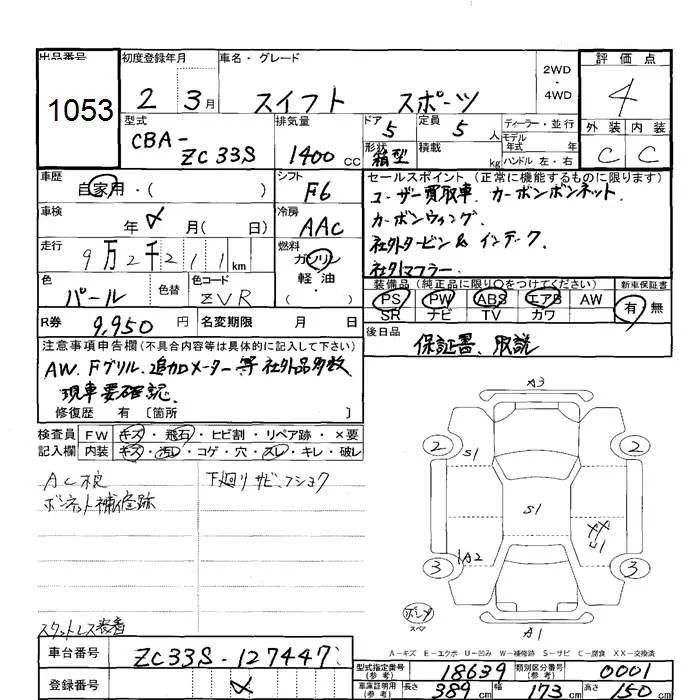 出品番号 1053
初度登録年月 2 3月
車名・グレード スイフト スポーツ
2WD・4WD
評価点 4
外装 C 内装 C
型式 CBA-ZC33S
排気量 1400cc
ドア 5
形状 箱型
定員 5人
積載 kg
ディーラー・並行
モデル年式 年
ハンドル 左・右
車歴 自家用・( )
シフト F6
車検 年 月( 日)
冷房 AAC
走行 9万2千211km
燃料 ガソリン 軽油 ・( )
色 パール
色替
色コード ZVR
R券 9,950円
名変期限 月 日
セールスポイント(正常に機能するものに限ります)
ユーザー買取車、カーボンボンネット、
カーボンウィング、
社外タービン& インテーク、
社外マフラー、
装備品(純正品に限り○をつけてください) 新車保証書
PS PW ABS エアB AW 有・無
SR ナビ TV カワ
後日品 保証書、取説
注意事項申告欄(不具合内容等は具体的に記入して下さい)
AW、Fグリル、追加メーター等社外品多数
現車要確認、
修復歴 有 〔箇所 〕
検査員記入欄
FW キズ・飛石・ヒビ割・リペア跡・×要
内装 キズ・汚レ・コゲ・穴・スレ・キレ・破レ
下廻リ サビ、フショク
ボンネット補修跡
スタットレス装着
A3
2 2
S1
S1
U1
A2
3 3
A1
スペア
A-キズ E-エクボ U-凹み W-補修跡 S-サビ C-腐食 XX-交換済
車台番号 ZC33S-127447
登録番号
型式指定番号(参考) 18639
類別区分番号(参考) 0001
車庫証明用(参考) 長さ 389cm 幅 173cm 高さ 150cm